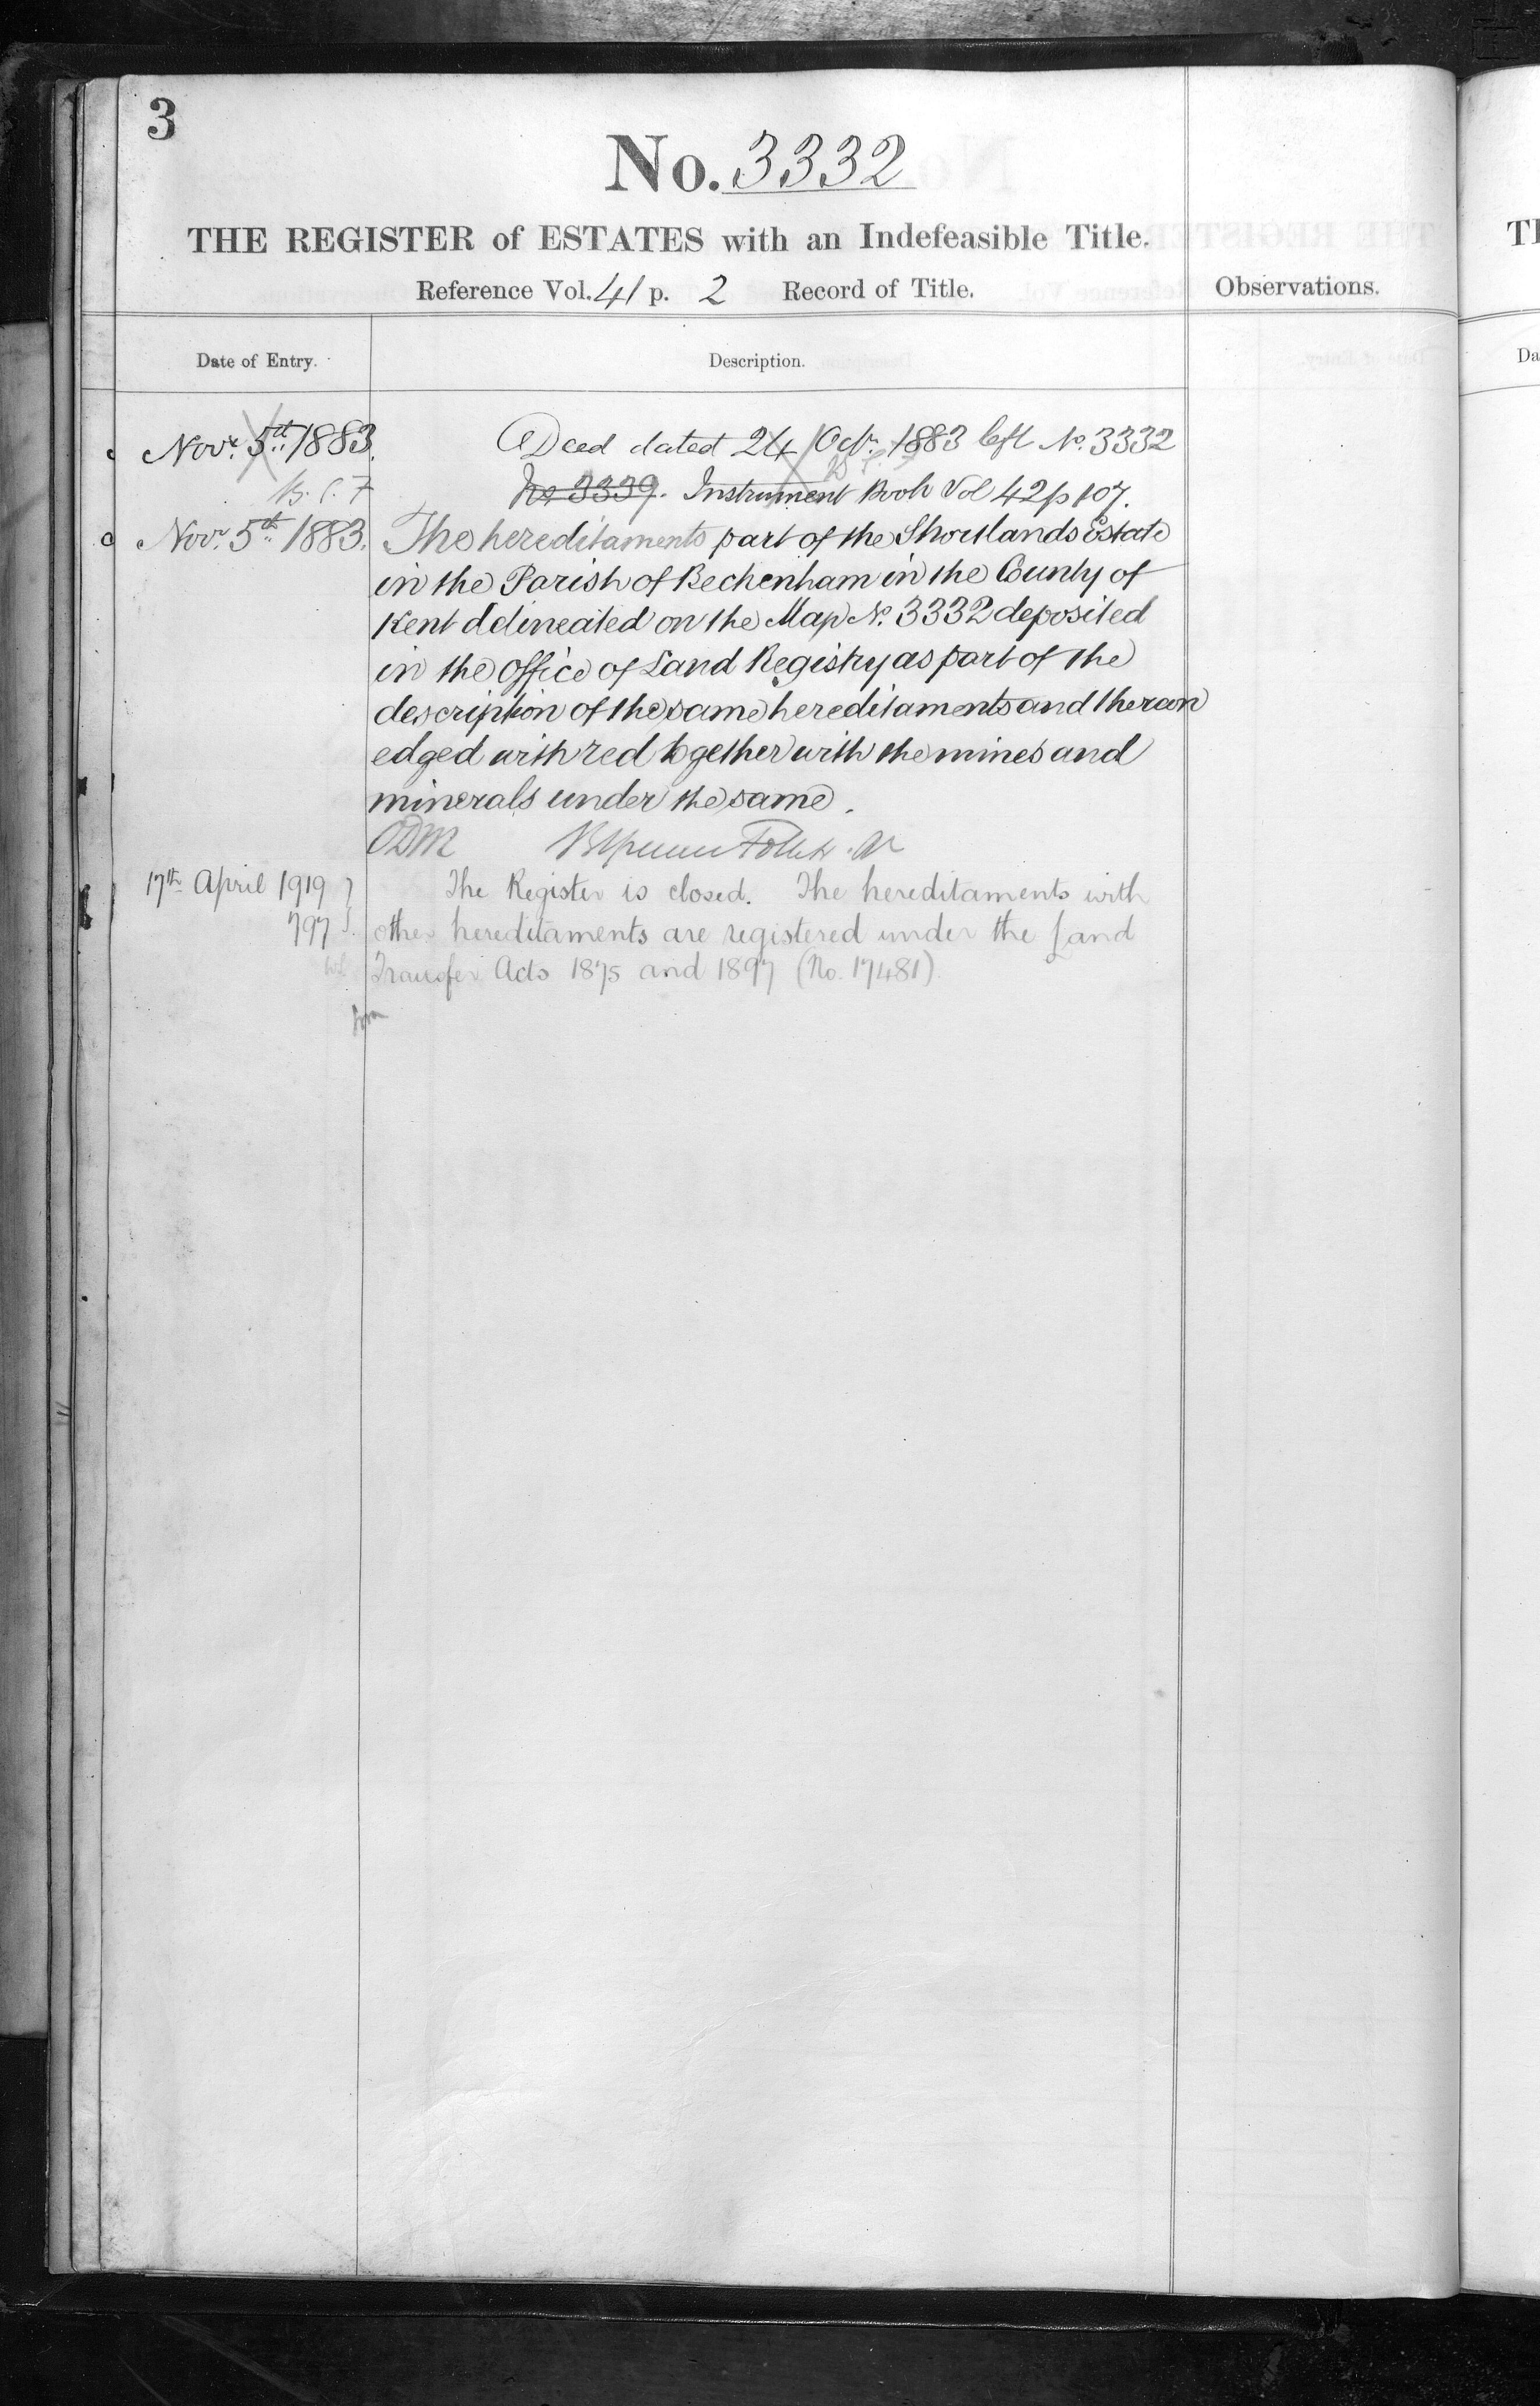 3
No. 3332
THE REGISTER of ESTATES with an Indefeasible Title.
Reference Vol. 41 p. 2 Record of Title.
Observations.
Date of Entry.
Description.
Novr. 5th 1883.
Deed dated 24 Octr. 1883 left No. 3332
No 3339. Instrument Book Vol 42 p 107.
Novr. 5th 1883.
The hereditaments part of the Shortlands Estate
in the Parish of Beckenham in the County of
Kent delineated on the Map No. 3332 deposited
in the office of Land Registry as part of the
description of the same hereditaments and thereon
edged with red together with the mines and
minerals under the same.
ODM
17th April 1919
797
The Register is closed. The hereditaments with
other hereditaments are registered under the Land
Transfer Acts 1875 and 1897 (No. 17481).